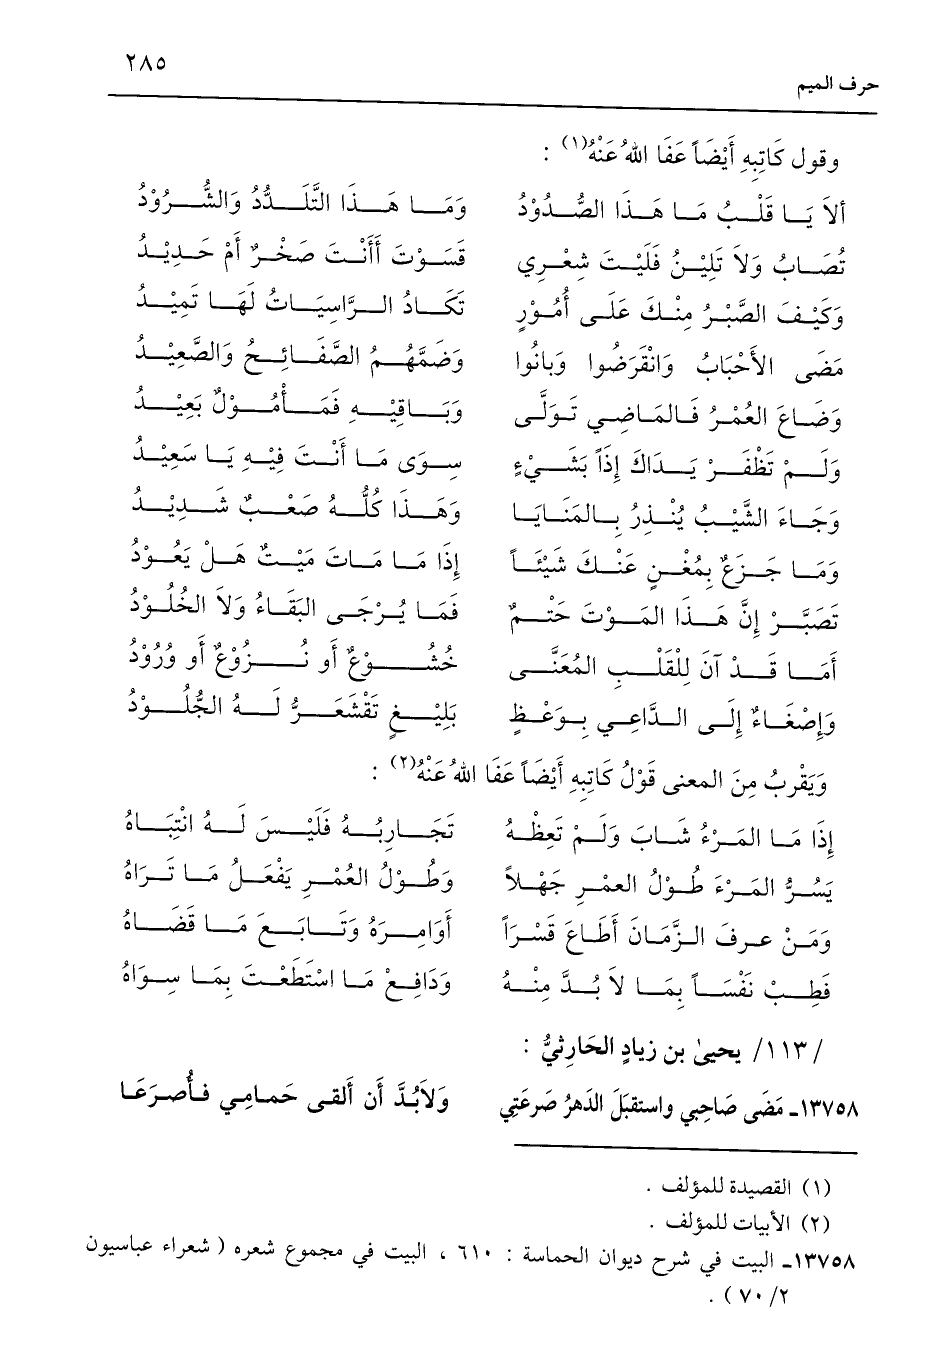 ٢٨٥
حرف الميم
وقول كَاتِبِهِ أَيْضَاً عَفَا اللهُ عَنْهُ(١) :
أَلاَ يَا قَلْبُ مَا هَذَا الصُّدُوْدُ وَمَا هَذَا التَّلَدُّدُ وَالشُّرُوْدُ
تُصَابُ وَلاَ تَلِيْنُ فَلَيْتَ شِعْرِي قَسَوْتَ أَأَنْتَ صَخْرٌ أَمْ حَدِيْدُ
وَكَيْفَ الصَّبْرُ مِنْكَ عَلَى أُمُوْرٍ تَكَادُ الرَّاسِيَاتُ لَهَا تَمِيْدُ
مَضَى الأَحْبَابُ وَانْقَرَضُوا وَبانُوا وَضَمَّهُمُ الصَّفَائِحُ وَالصَّعِيْدُ
وَضَاعَ العُمْرُ فَالمَاضِي تَوَلَّى وَبَاقِيْهِ فَمَأْمُوْلٌ بَعِيْدُ
وَلَمْ تَظْفَرْ يَدَاكَ إِذَاً بَشَيْءٍ سِوَى مَا أَنْتَ فِيْهِ يَا سَعِيْدُ
وَجَاءَ الشَّيْبُ يُنْذِرُ بِالمَنَايَا وَهَذَا كُلُّهُ صَعْبٌ شَدِيْدُ
وَمَا جَزَعٌ بِمُغْنٍ عَنْكَ شَيْئَاً إِذَا مَا مَاتَ مَيْتٌ هَلْ يَعُوْدُ
تَصَبَّرْ إِنَّ هَذَا المَوْتَ حَتْمٌ فَمَا يُرْجَى البَقَاءُ وَلاَ الخُلُوْدُ
أَمَا قَدْ آنَ لِلْقَلْبِ المُعَنَّى خُشُوْعٌ أَو نُزُوْعٌ أَو وُرُوْدُ
وَإِصْغَاءٌ إِلَى الدَّاعِي بِوَعْظٍ بَلِيْغٍ تَقْشَعَرُّ لَهُ الجُّلُوْدُ
وَيَقْرِبُ مِنَ المعنى قَوْلُ كَاتِبِهِ أَيْضَاً عَفَا اللهُ عَنْهُ(٢) :
إِذَا مَا المَرْءُ شَابَ وَلَمْ تَعِظْهُ تَجَارِبُهُ فَلَيْسَ لَهُ انْتِبَاهُ
يَسُرُّ المَرْءَ طُوْلُ العمْرِ جَهْلاً وَطُوْلُ العُمْرِ يَفْعَلُ مَا تَرَاهُ
وَمَنْ عرفَ الزَّمَانَ أَطَاعَ قَسْرَاً أَوَامِرَهُ وَتَابَعَ مَا قَضَاهُ
فَطِبْ نَفْسَاً بِمَا لاَ بُدَّ مِنْهُ وَدَافِعْ مَا اسْتَطَعْتَ بِمَا سِوَاهُ
/١١٣/ يحيىٰ بن زيادٍ الحَارِثيُّ :
١٣٧٥٨ـ مَضَى صَاحِبي واستقبَلَ الدَهرُ صَرعَتِي وَلاَبُدَّ أَن ألقى حَمامِي فأُصرَعَا
(١) القصيدة للمؤلف .
(٢) الأبيات للمؤلف .
١٣٧٥٨ـ البيت في شرح ديوان الحماسة : ٦١٠ ، البيت في مجموع شعره ( شعراء عباسيون
٢/ ٧٠ ) .